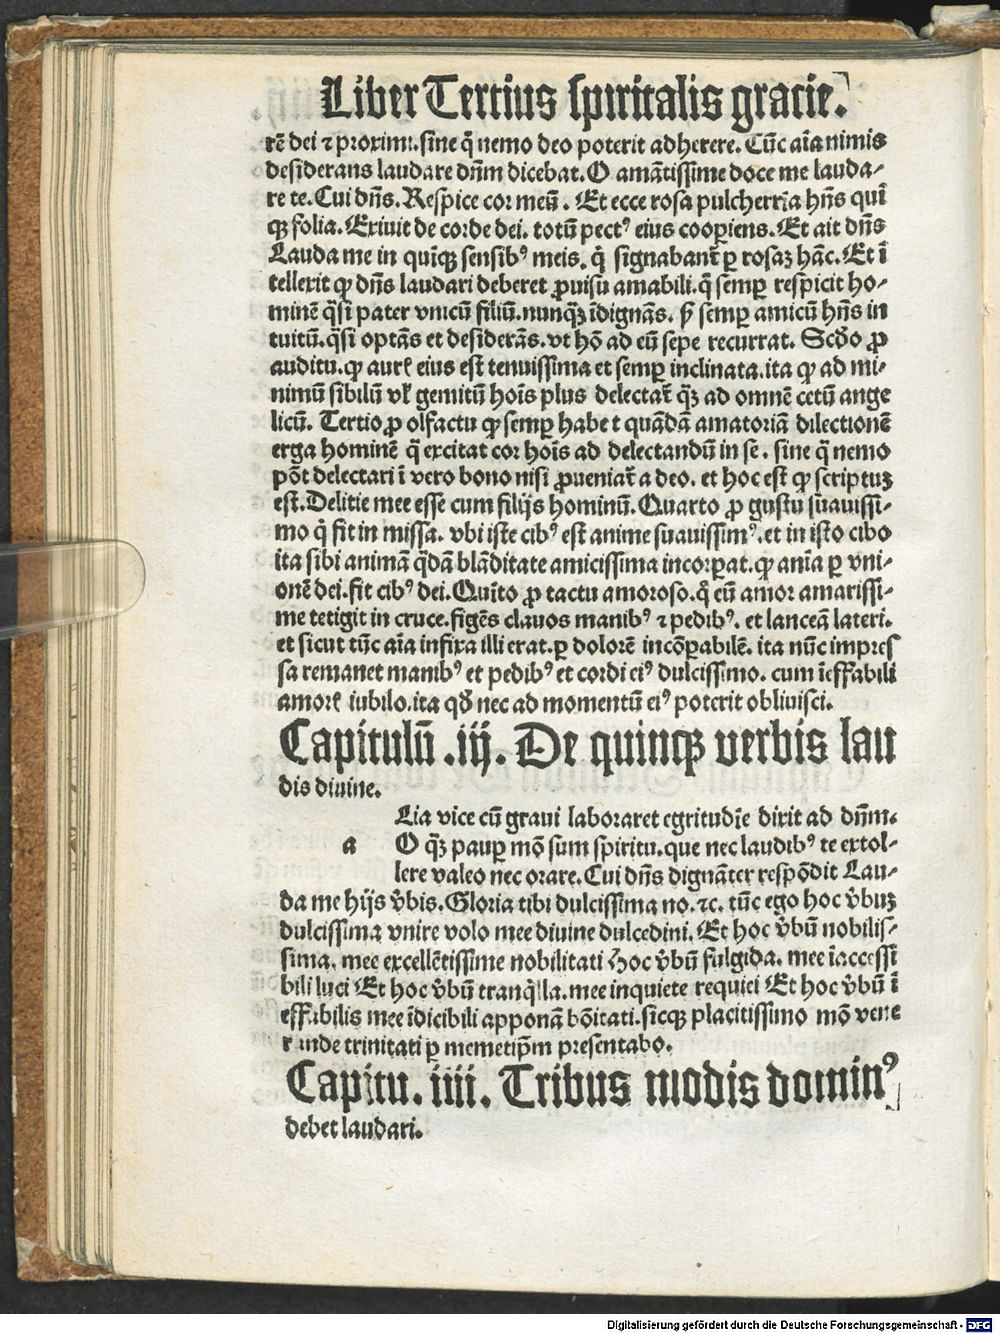 Liber Tertius spiritalis gracie.
rē dei ⁊ proximi. sine q̄ nemo deo poterit adherere. Tūc aīa nimis
desiderans laudare dn̄m dicebat. O amātissime doce me lauda⸗
re te. Cui dn̄s. Respice cor meū. Et ecce rosa pulcherrīa hn̄s quī
qꝫ folia. Exiuit de corde dei. totū pectꝰ eius cooꝑiens. Et ait dn̄s
Lauda me in quīqꝫ sensibꝰ meis. q̄ signabant̄ ꝑ rosaꝫ hāc. Et ī
tellexit ꝙ dn̄s laudari deberet ꝓ uisu amabili. q̄ semꝑ respicit ho⸗
minē q̄si pater vnicū filiū. nunqꝫ̄ īdignās. sꝫ semꝑ amicū hn̄s in
tuitū. q̄si optās et desiderās. vt hō ad eū sepe recurrat. Scd̄o ꝓ
auditu. ꝙ aurꝭ eius est tenuissima et semꝑ inclinata. ita ꝙ ad mi⸗
nimū sibilū vꝉ gemitū hoīs plus delectat̄ qꝫ̄ ad omnē cetū ange
licū. Tertio ꝓ olfactu ꝙ semꝑ habet quādā amatoriā dilectionē
erga hominē q̄ excitat cor hoīs ad delectandū in se. sine q̄ nemo
pōt delectari ī vero bono nisi ꝓueniat̄ a deo. et hoc est ꝙ scriptuꝫ
est. Delitie mee esse cum filijs hominū. Quarto ꝓ gustu suauissi⸗
mo q̄ fit in missa. vbi iste cibꝰ est anime suauissimꝰ. et in isto cibo
ita sibi animā q̄dā blāditate amicissima incorꝑat. ꝙ anīa ꝑ vni⸗
onē dei. fit cibꝰ dei. Quīto ꝓ tactu amoroso. q̄ eū amor amarissi⸗
me tetigit in cruce. figēs clauos manibꝰ ⁊ pedibꝰ. et lanceā lateri.
et sicut tūc aīa infixa illi erat. ꝑ dolorē incōꝑabilē. ita nūc impres
sa remanet manibꝰ et pedibꝰ et cordi eiꝰ dulcissimo. cum īeffabili
amorꝭ iubilo. ita qd̄ nec ad momentū eiꝰ poterit obliuisci.
Capitulū .iij. De quinqꝫ verbis lau
dis diuine.
Lia vice cū graui laboraret egritudīe dixit ad dn̄m.
a O qꝫ̄ pauꝑ mō sum spiritu. que nec laudibꝰ te extol⸗
lere valeo nec orare. Cui dn̄s dignāter respōdit Lau⸗
da me hijs v̄bis. Gloria tibi dulcissima no. ⁊c. tūc ego hoc v̄buꝫ
dulcissima vnire volo mee diuine dulcedini. Et hoc v̄bū nobilis⸗
sima. mee excellētissime nobilitati Hoc v̄bū fulgida. mee īaccessi
bili luci Et hoc v̄bū tranq̄lla. mee inquiete requiei Et hoc v̄bū ī
effabilis mee īdicibili apponā bōitati. sicqꝫ placitissimo mō vene
rande trinitati ꝑ memetip̄m presentabo.
Capitu. iiii. Tribus modis dominꝰ
debet laudari.
Digitalisierung gefördert durch die Deutsche Forschungsgemeinschaft - DFG